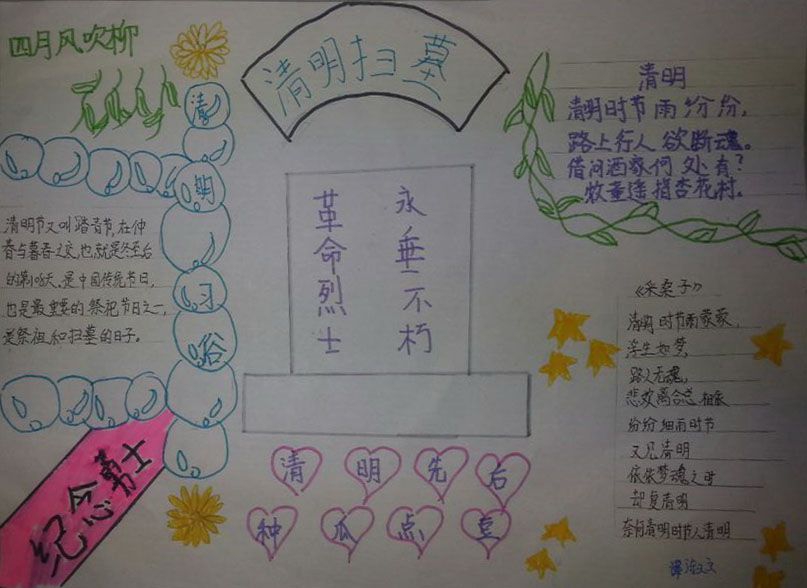 四月风吹柳
清明扫墓
清明习俗
清明节又叫踏青节,在仲
春与暮春之交,也就是冬至后
的第108天。是中国传统节日,
也是最重要的祭祀节日之一,
是祭祖和扫墓的日子。
纪念勇士
革命烈士
永垂不朽
清明先后
种瓜点豆
清明
清明时节雨纷纷,
路上行人欲断魂。
借问酒家何处有?
牧童遥指杏花村。
《采桑子》
清明时节雨蒙蒙,
浮生如梦,
路人无魂。
悲欢离合总相依
纷纷细雨时节
又见清明
依依梦魂之时
却复清明
奈何清明时节人清明